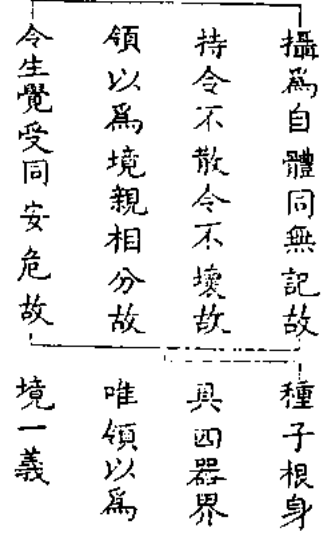 攝爲自體同無記故
持令不散令不壞故
領以爲境親相分故
令生覺受同安危故
種子根身
具四器界
唯領以爲
境一義